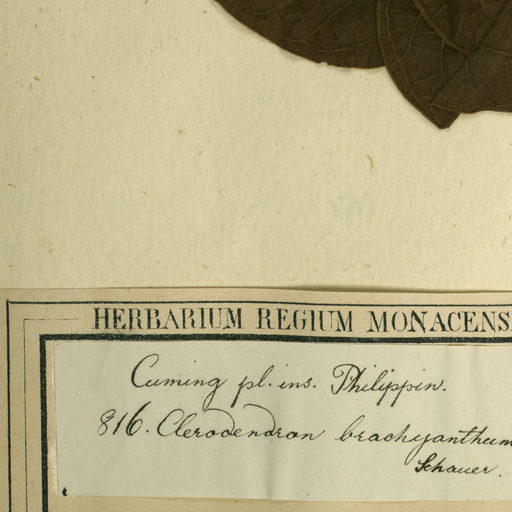 HERBARIUM REGIUM MONACENS
Cuming pl. ins. Philippin.
816. Clerodendron brachyanthum
Schauer.